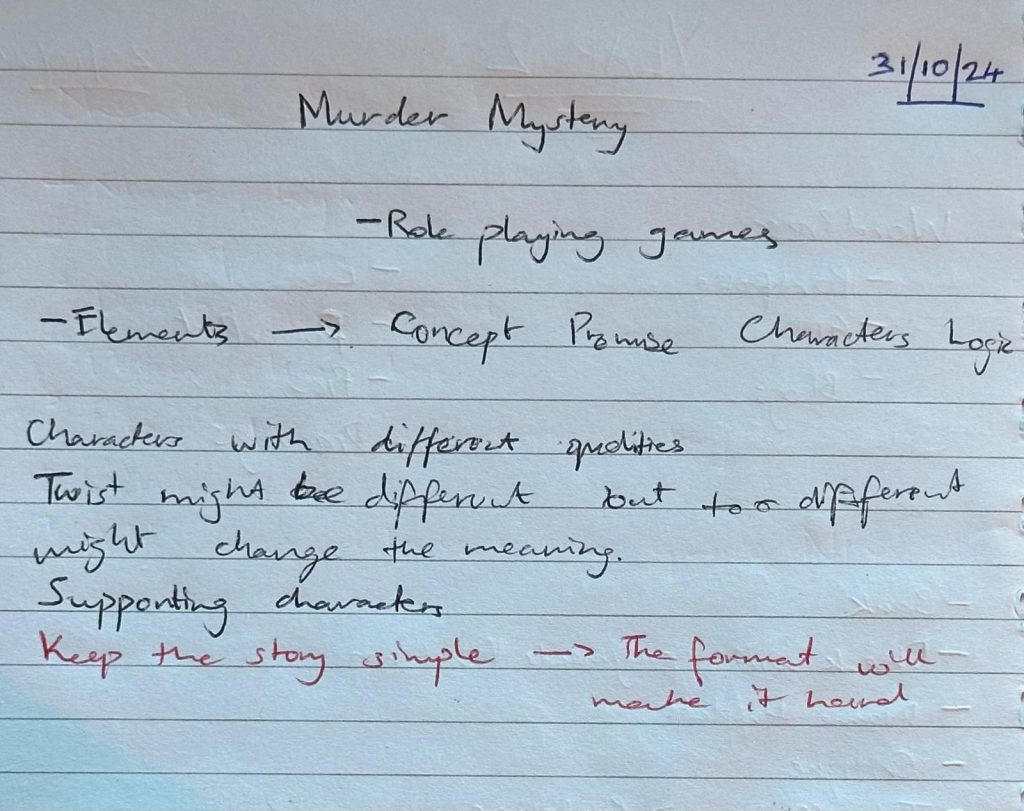 31/10/24
Murder Mystery
-Role playing games
-Elements → Concept Promise Characters Logic
Characters with different qualities
Twist might be different but too different
might change the meaning.
Supporting characters
Keep the story simple → The format will
make it hard